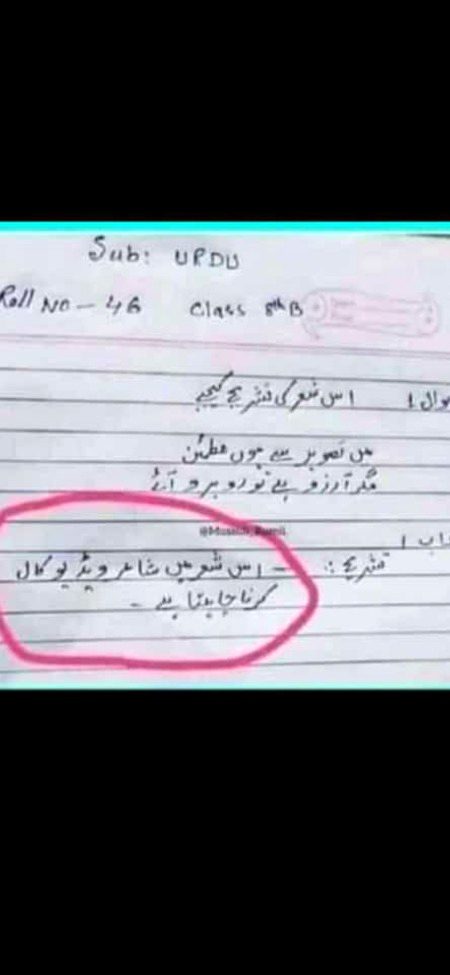 Sub: URDU
Roll No - 46 Class 8th B
سوال 1 اس شعر کی تشریح کیجیے
میں تصویر سے ہوں مطمئن
مگر آرزو ہے تو روبرو آئے
جواب 1
تشریح :- اس شعر میں شاعر ویڈیو کال
کرنا چاہتا ہے -